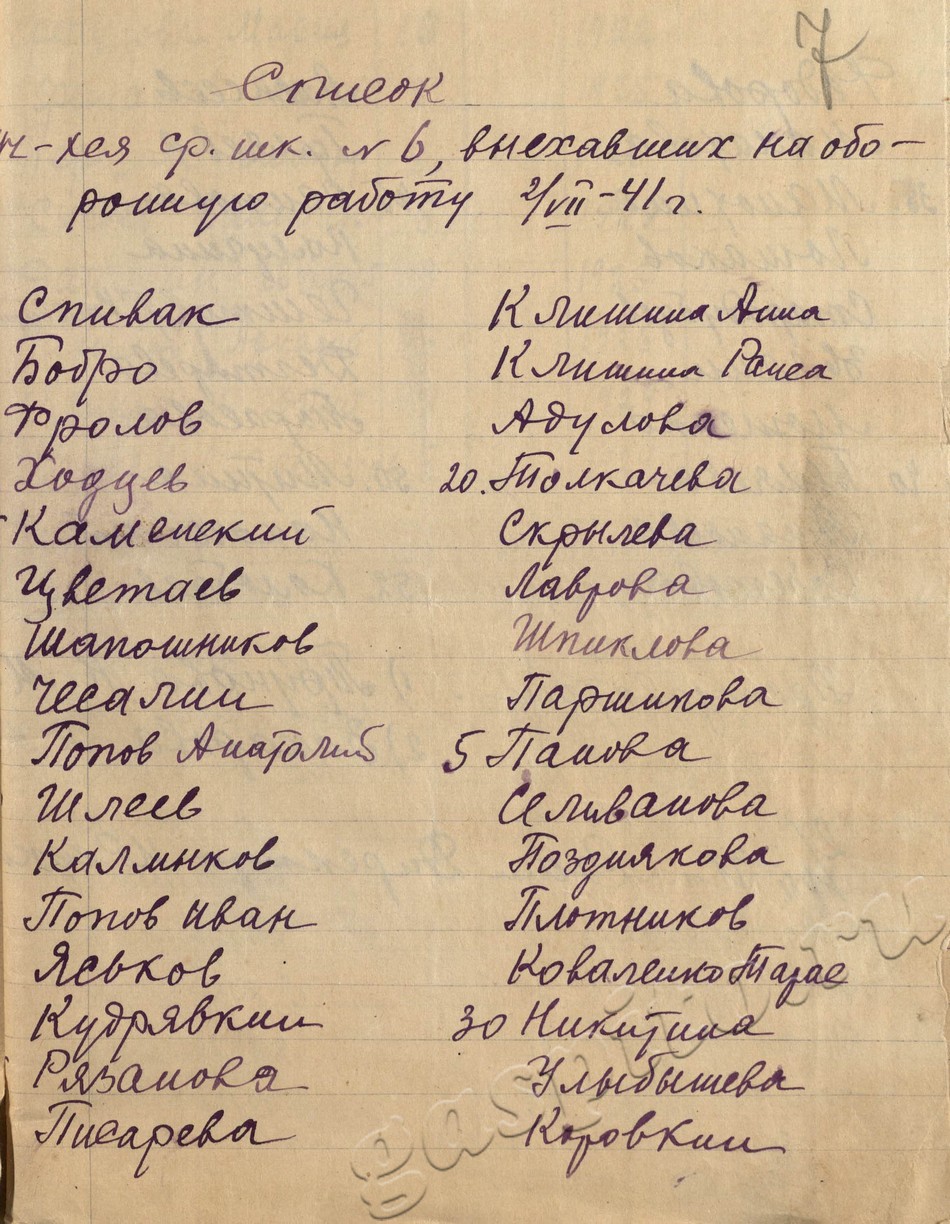 7
Список
уч-хся ср. шк. № 6, выехавших на обо-
ронную работу 2/VII-41 г.
Спивак
Бобро
Фролов
Ходцев
Каменский
Цветаев
Шапошников
Чесалин
Попов Анатолий
Шлеев
Калинков
Попов Иван
Яськов
Кудрявкин
Рязанова
Писарева
Клишина Анна
Клишина Раиса
Адулова
20. Толкачева
Скрылева
Лаврова
Шпиклова
Паршикова
5 Панова
Селиванова
Позднякова
Плотников
Коваленко Тарас
30 Никитина
Улыбышева
Коровкин